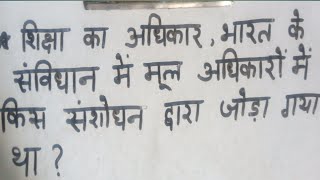 * शिक्षा का अधिकार, भारत के
संविधान में मूल अधिकारों में
किस संशोधन द्वारा जोड़ा गया
था ?